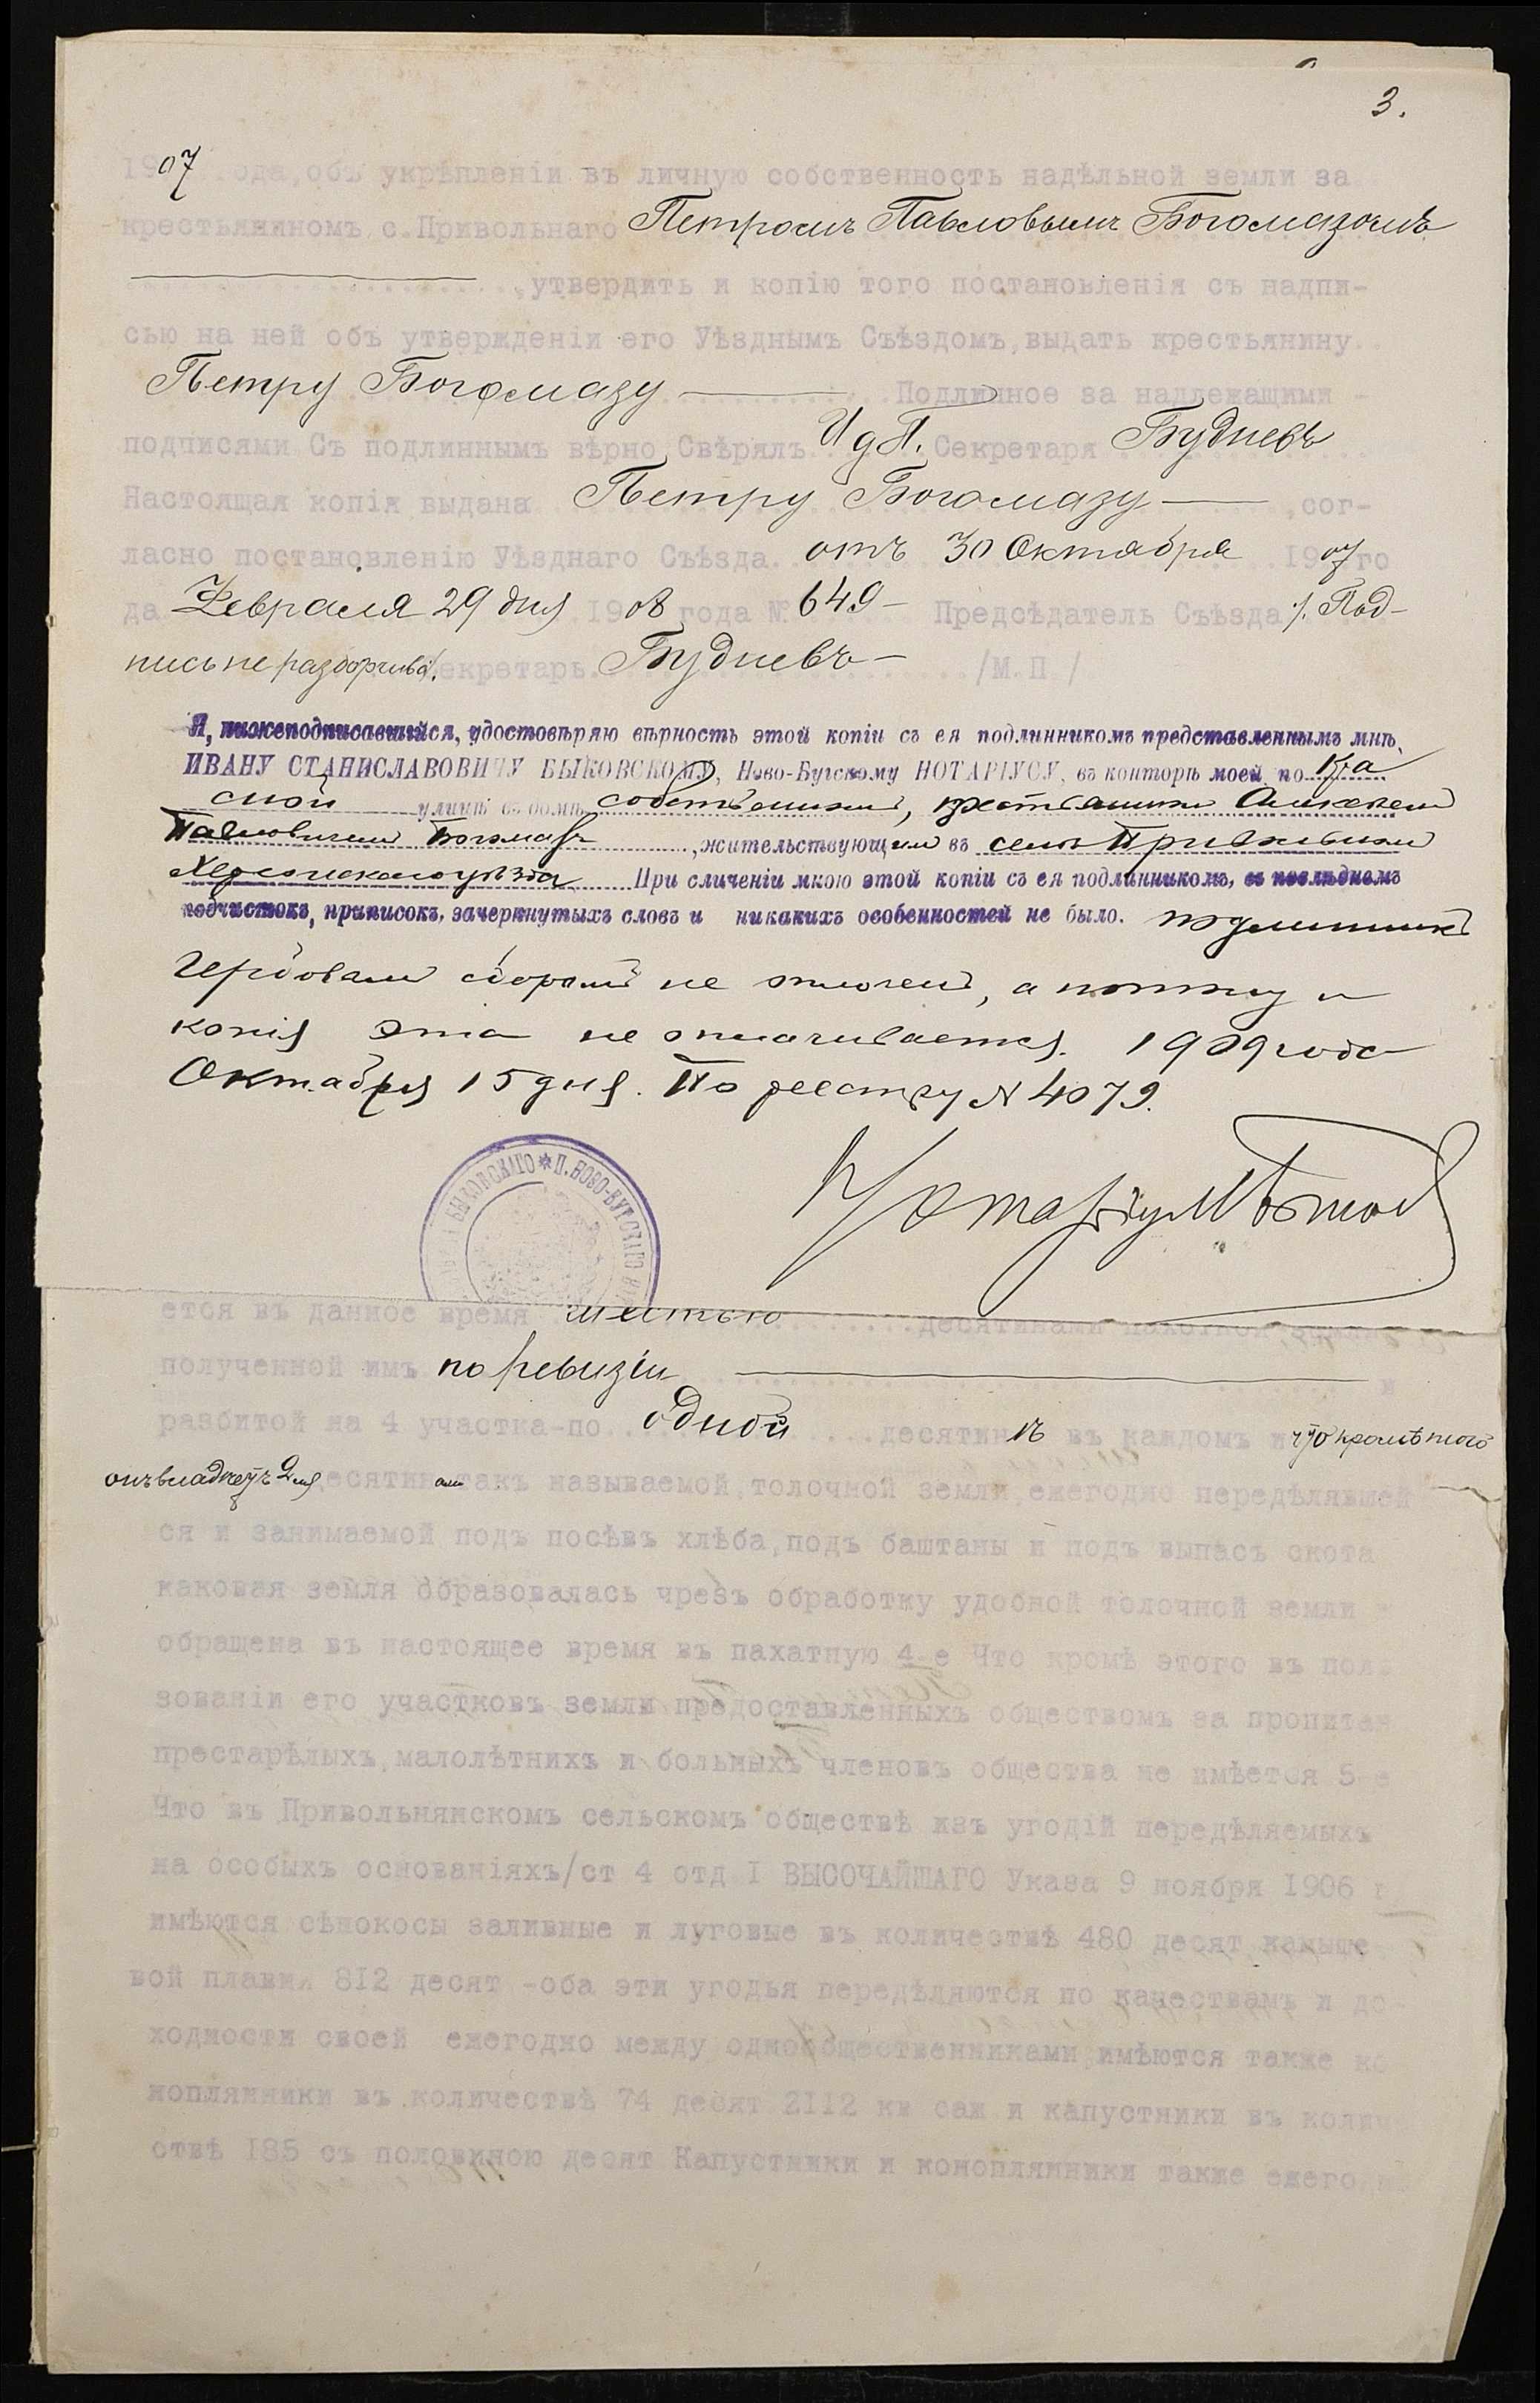 3.
1907 года, объ укрѣпленіи въ личную собственность надѣльной земли за
крестьяниномъ с. Привольнаго Петромъ Павловымъ Богомазомъ
, утвердить и копію того постановленія съ надпи-
сью на ней объ утвержденіи его Уѣзднымъ Съѣздомъ, выдать крестьянину
Петру Богомазу Подлинное за надлежащими
подписями Съ подлиннымъ вѣрно Свѣрялъ И д П. Секретаря Будневъ
Настоящая копія выдана Петру Богомазу , сог-
ласно постановленію Уѣзднаго Съѣзда отъ 30 Октября 1907 го
да Февраля 29 дня 1908 года № 649- Предсѣдатель Съѣзда /. Под-
пись не разборчива/. Секретарь Будневъ- /М.П./
Я, нижеподписавшійся, удостовѣряю вѣрность этой копіи съ ея подлинникомъ представленнымъ мнѣ,
ИВАНУ СТАНИСЛАВОВИЧУ БЫКОВСКОМУ, Ново-Бугскому НОТАРІУСУ, въ конторѣ моей по
улицѣ въ домѣ крестьянином Алексеем
Павловичем Богомаз , жительствующим въ селѣ Привольном
Херсонскаго уѣзда При сличеніи мною этой копіи съ ея подлинникомъ, въ послѣднемъ
подчистокъ, приписокъ, зачеркнутыхъ словъ и никакихъ особенностей не было. подлинникъ
гербовым сбором не оплочен, а потому и
копія эта не оплачивается. 1909 года
Октября 15 дня. По реестру N 4079.
БЫКОВСКІГО * П. НОВО-БУГСКАГО
Нотаріус
ется въ данное время шестью десятинами пахотной земли
полученной имъ по ревизіи и
разбитой на 4 участка-по одной десятинѣ въ каждомъ и что кромѣ того
онъ владѣетъ 2мя десятинами такъ называемой толочной земли, ежегодно передѣлявшей
ся и занимаемой подъ посѣвъ хлѣба, подъ баштаны и подъ выпасъ скота
каковая земля образовалась чрезъ обработку удобной толочной земли
обращена въ настоящее время въ пахатную 4-е Что кромѣ этого въ поль
зованіи его участковъ земли предоставленныхъ обществомъ за пропитан
престарѣлыхъ, малолѣтнихъ и больныхъ членовъ общества не имѣется 5-е
Что въ Привольнянскомъ сельскомъ обществѣ изъ угодій передѣляемыхъ
на особыхъ основаніяхъ/ст 4 отд I ВЫСОЧАЙШАГО Указа 9 ноября 1906 г
имѣются сѣнокосы заливные и луговые въ количествѣ 480 десят камыше
вой плавни 812 десят -оба эти угодья передѣляются по качествамъ и до-
ходности своей ежегодно между однообщественниками, имѣются также ко
нопляники въ количествѣ 74 десят 2112 кв саж и капустники въ количе
ствѣ 185 съ половиною десят Капустники и конопляники также ежегодно